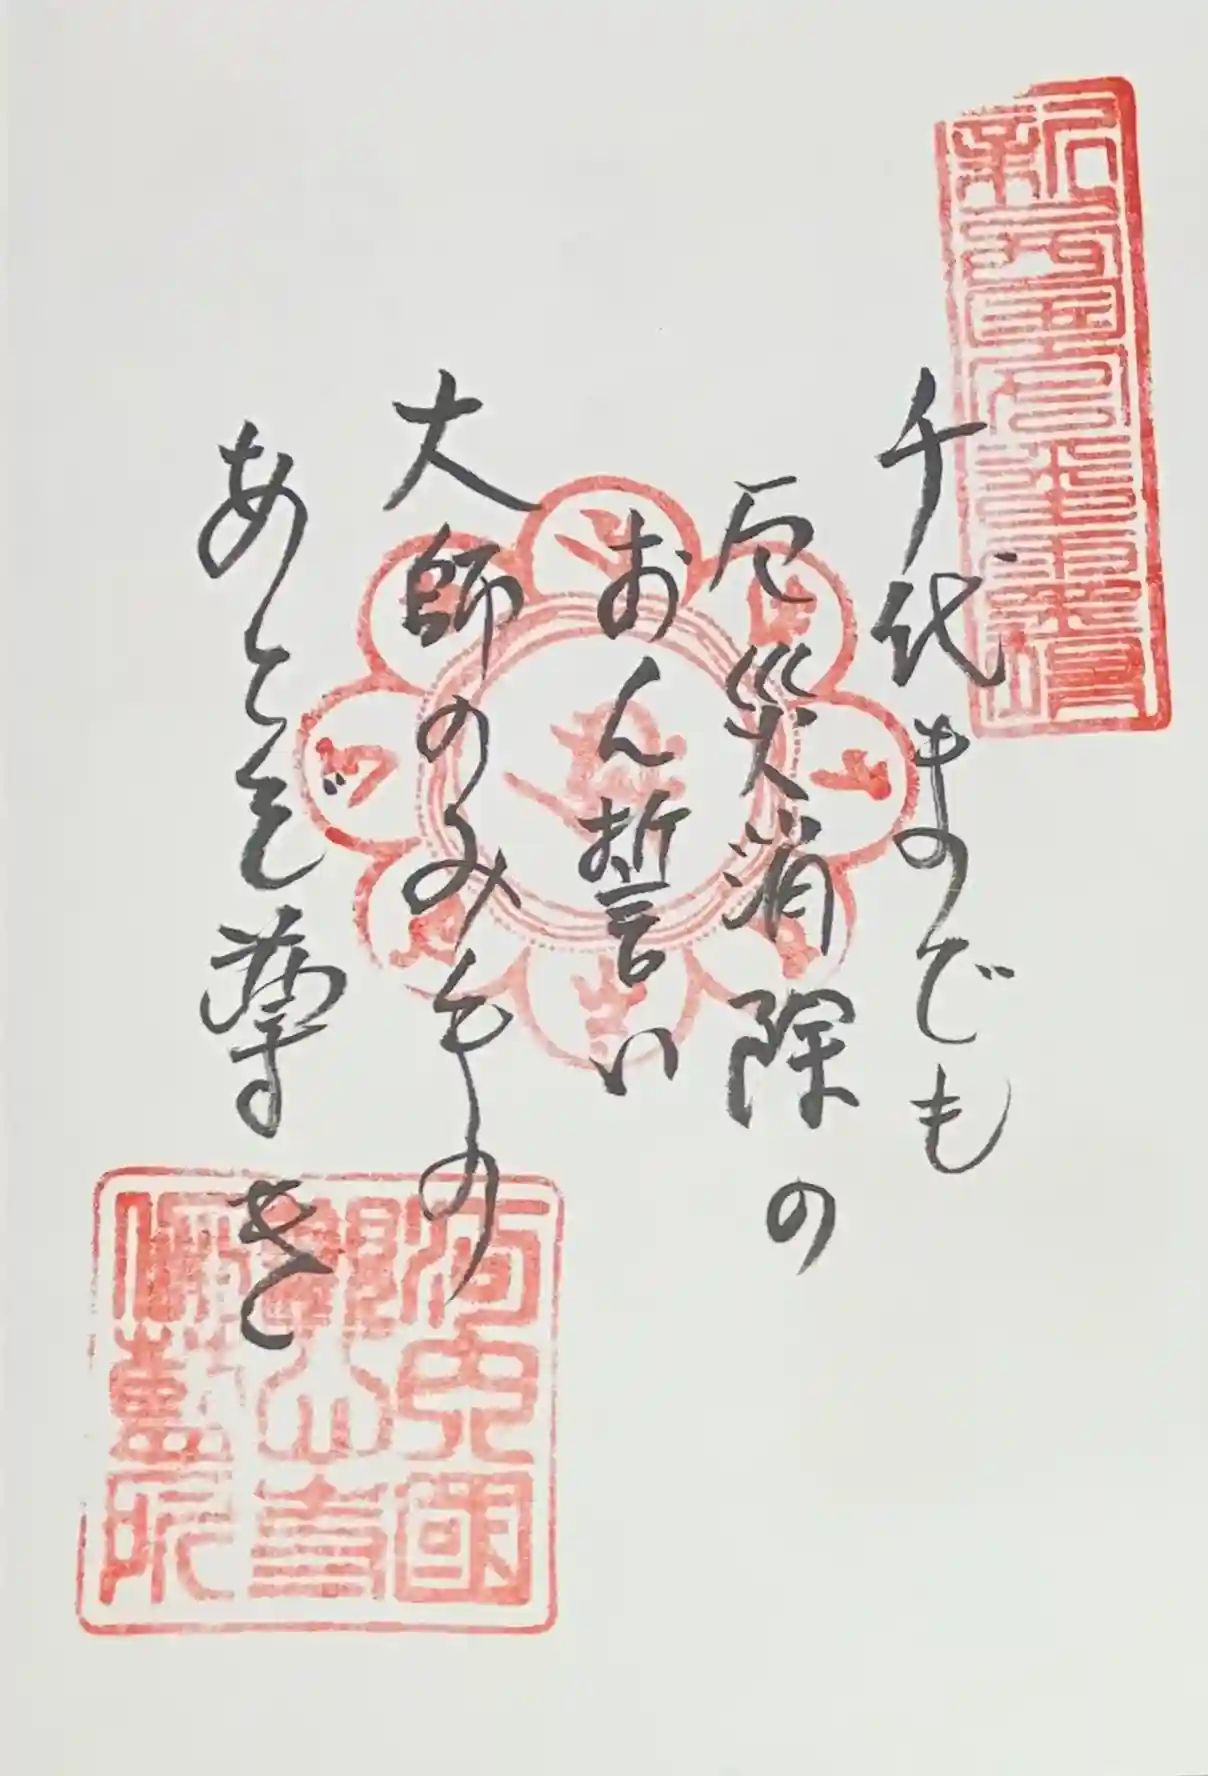 千代までも
厄災消除の
おん誓い
大師のみもの
あとぞ尊き
河内國
山寺